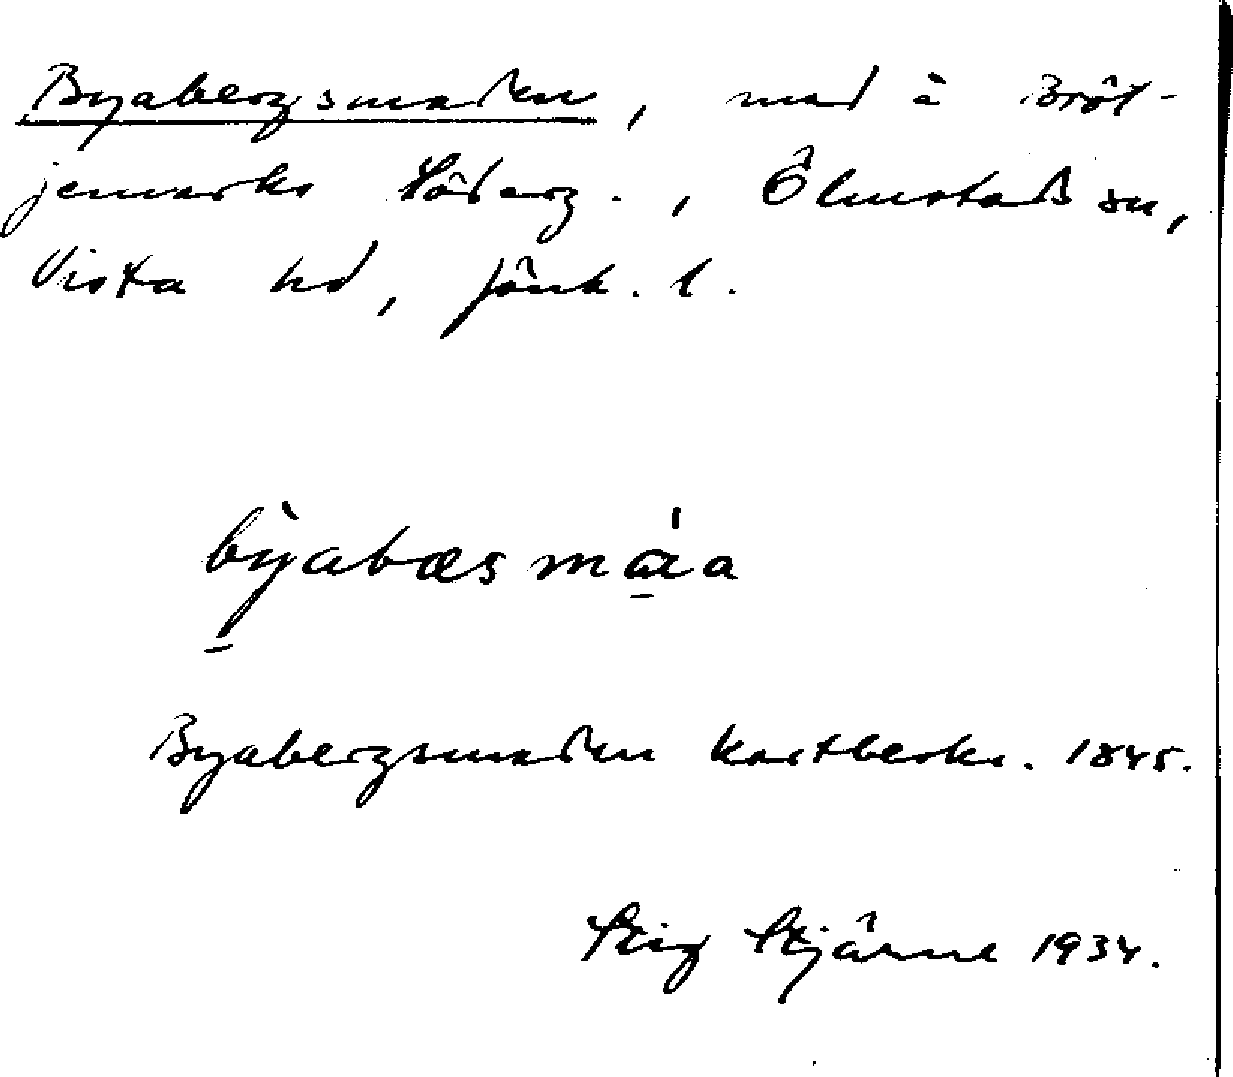 Byabergsmaden, mad å Bröt-
jemarks Söderg., Ölmstads sn,
Vista hd, Jönk. l.
b̀yabæsmáa
Byabergsmaden kartbeskr. 1845.
Stig Stjärne 1934.